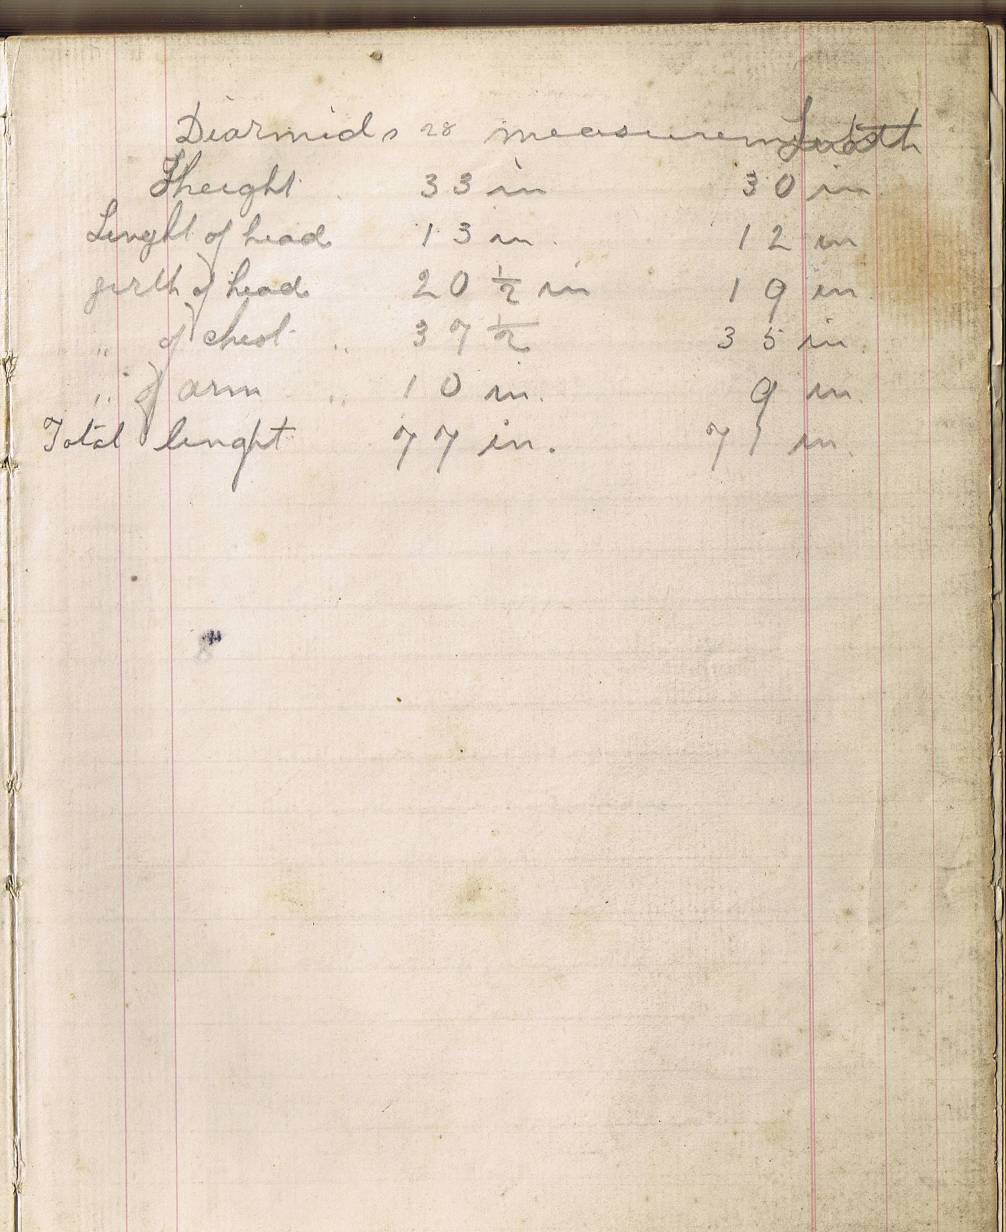 Diarmids 28 measurem Luath
Hheight 33 in 30 in
Lenght of head 13 in. 12 in
girth of head 20 ½ in 19 in
" of chest " 37 ½ 35 in
" of arm " 10 in. 9 in.
Total lenght 77 in. 71 in.